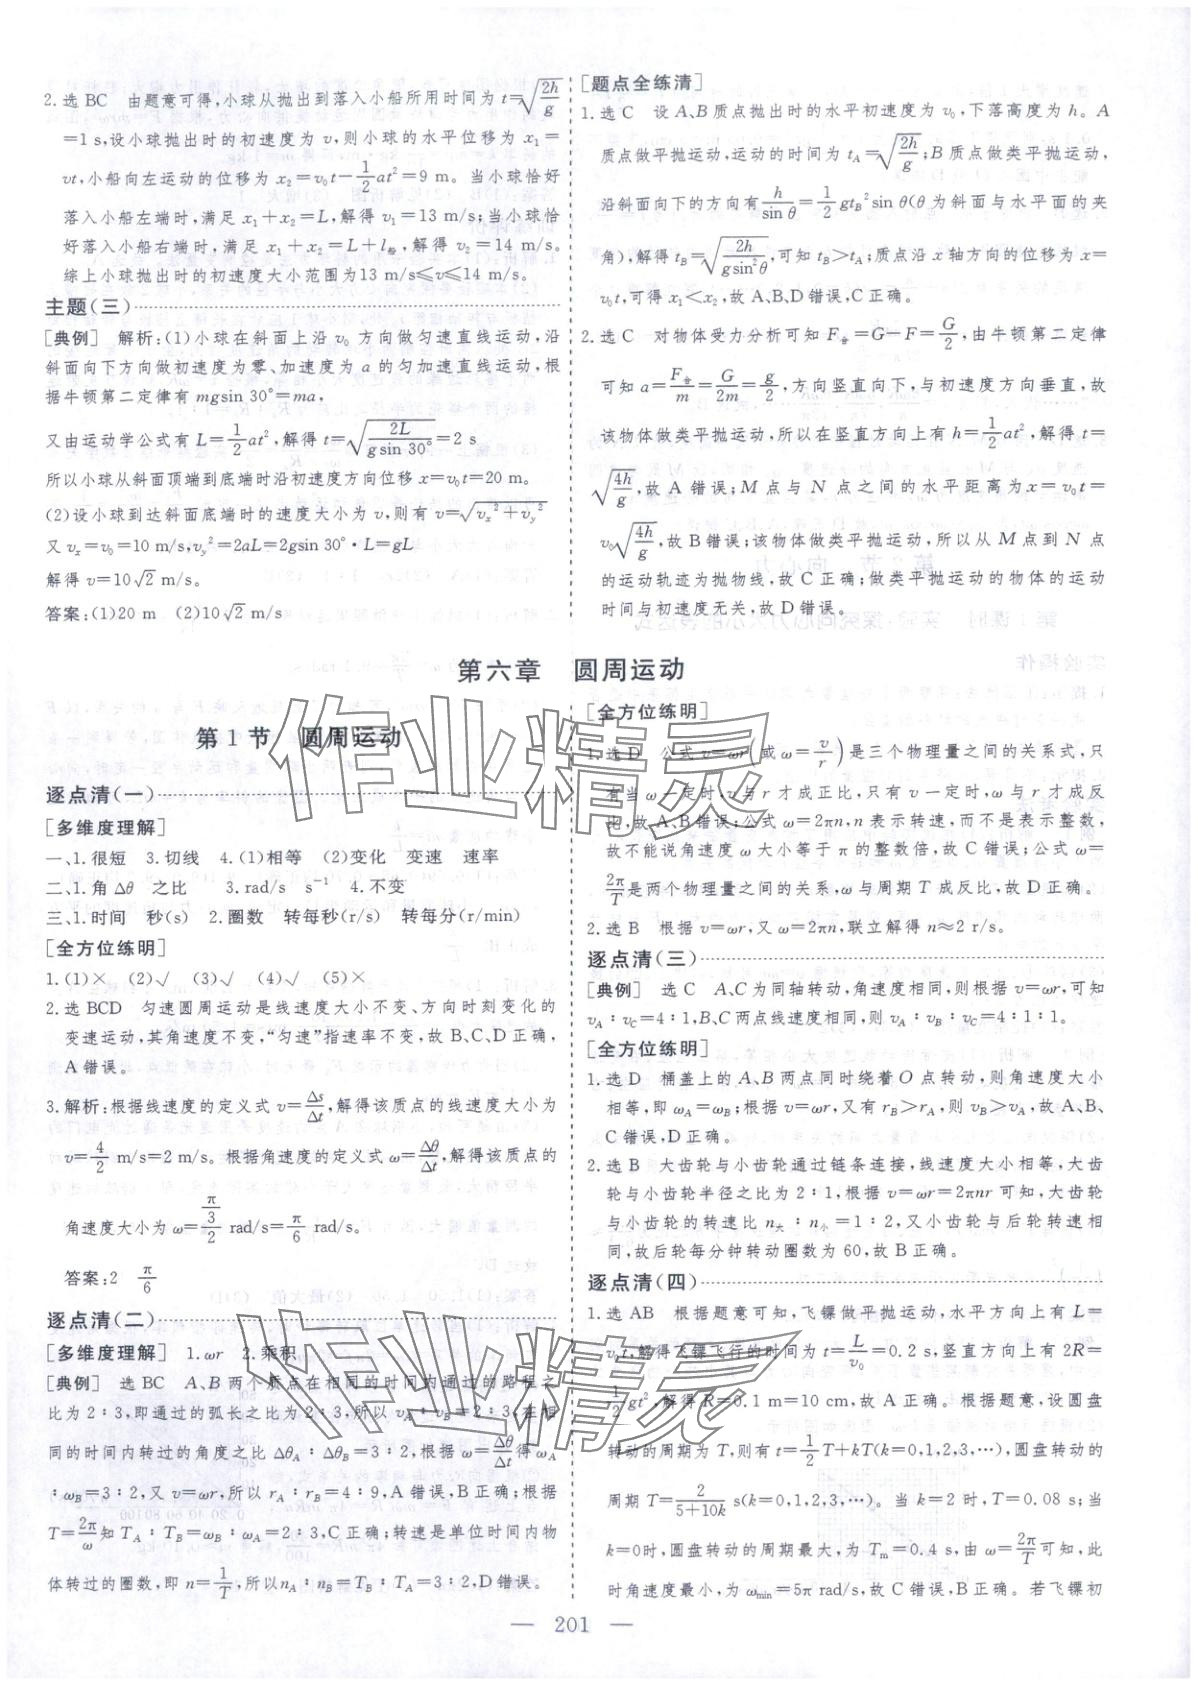 2.选BC 由题意可得,小球从抛出到落入小船所用时间为 t=√(2h/g)
=1 s,设小球抛出时的初速度为 v,则小球的水平位移为 x₁=
vt,小船向左运动的位移为 x₂=v₀t-1/2at²=9 m。当小球恰好
落入小船左端时,满足 x₁+x₂=L,解得 v₁=13 m/s;当小球恰
好落入小船右端时,满足 x₁+x₂=L+l船,解得 v₂=14 m/s。
综上小球抛出时的初速度大小范围为13 m/s≤v≤14 m/s。
主题(三)
[典例] 解析:(1)小球在斜面上沿 v₀ 方向做匀速直线运动,沿
斜面向下方向做初速度为零、加速度为 a 的匀加速直线运动,根
据牛顿第二定律有 mgsin 30°=ma,
又由运动学公式有 L=1/2at²,解得 t=√(2L/gsin 30°)=2 s
所以小球从斜面顶端到底端时沿初速度方向位移 x=v₀t=20 m。
(2)设小球到达斜面底端时的速度大小为 v,则有 v=√(vₓ²+v_y²)
又 vₓ=v₀=10 m/s,v_y²=2aL=2gsin 30°·L=gL
解得 v=10√2 m/s。
答案:(1)20 m (2)10√2 m/s
[题点全练清]
1.选C 设A、B质点抛出时的水平初速度为 v₀,下落高度为 h。A
质点做平抛运动,运动的时间为 t_A=√(2h/g);B 质点做类平抛运动,
沿斜面向下的方向有 h/sin θ=1/2gt_B²sin θ(θ为斜面与水平面的夹
角),解得 t_B=√(2h/gsin²θ),可知 t_B>t_A;质点沿 x 轴方向的位移为 x=
v₀t,可得 x₁<x₂,故 A、B、D 错误,C 正确。
2.选C 对物体受力分析可知 F合=G-F=G/2,由牛顿第二定律
可知 a=F合/m=G/2m=g/2,方向竖直向下,与初速度方向垂直,故
该物体做类平抛运动,所以在竖直方向上有 h=1/2at²,解得 t=
√(4h/g),故 A 错误;M 点与 N 点之间的水平距离为 x=v₀t=
v₀√(4h/g),故 B 错误;该物体做类平抛运动,所以从 M 点到 N 点
的运动轨迹为抛物线,故 C 正确;做类平抛运动的物体的运动
时间与初速度无关,故 D 错误。
第六章 圆周运动
第1节 圆周运动
逐点清(一)
[多维度理解]
一、1.很短 3.切线 4.(1)相等 (2)变化 变速 速率
二、1.角 Δθ 之比 3.rad/s s⁻¹ 4.不变
三、1.时间 秒(s) 2.圈数 转每秒(r/s) 转每分(r/min)
[全方位练明]
1.(1)× (2)√ (3)√ (4)√ (5)×
2.选BCD 匀速圆周运动是线速度大小不变、方向时刻变化的
变速运动,其角速度不变,“匀速”指速率不变,故 B、C、D 正确,
A 错误。
3.解析:根据线速度的定义式 v=Δs/Δt,解得该质点的线速度大小为
v=4/2 m/s=2 m/s。根据角速度的定义式 ω=Δθ/Δt,解得该质点的
角速度大小为 ω=(π/3)/2 rad/s=π/6 rad/s。
答案:2 π/6
逐点清(二)
[多维度理解] 1.ωr 2.乘积
[典例] 选BC A、B两个质点在相同的时间内通过的路程之
比为2∶3,即通过的弧长之比为2∶3,所以 v_A∶v_B=2∶3,在相
同的时间内转过的角度之比 Δθ_A∶Δθ_B=3∶2,根据 ω=Δθ/Δt得 ω_A
∶ω_B=3∶2,又 v=ωr,所以 r_A∶r_B=4∶9,A 错误,B 正确;根据
T=2π/ω知 T_A∶T_B=ω_B∶ω_A=2∶3,C 正确;转速是单位时间内物
体转过的圈数,即 n=1/T,所以 n_A∶n_B=T_B∶T_A=3∶2,D 错误。
[全方位练明]
1.选D 公式 v=ωr(或 ω=v/r)是三个物理量之间的关系式,只
有当 ω 一定时,v 与 r 才成正比,只有 v 一定时,ω 与 r 才成反
比,故 A、B 错误;公式 ω=2πn,n 表示转速,而不是表示整数,
故不能说角速度 ω 大小等于 π 的整数倍,故 C 错误;公式 ω=
2π/T是两个物理量之间的关系,ω 与周期 T 成反比,故 D 正确。
2.选B 根据 v=ωr,又 ω=2πn,联立解得 n≈2 r/s。
逐点清(三)
[典例] 选C A、C 为同轴转动,角速度相同,则根据 v=ωr,可知
v_A∶v_C=4∶1,B、C 两点线速度相同,则 v_A∶v_B∶v_C=4∶1∶1。
[全方位练明]
1.选D 桶盖上的 A、B 两点同时绕着 O 点转动,则角速度大小
相等,即 ω_A=ω_B;根据 v=ωr,又有 r_B>r_A,则 v_B>v_A,故 A、B、
C 错误,D 正确。
2.选B 大齿轮与小齿轮通过链条连接,线速度大小相等,大齿
轮与小齿轮半径之比为2∶1,根据 v=ωr=2πnr 可知,大齿轮
与小齿轮的转速比 n大∶n小=1∶2,又小齿轮与后轮转速相
同,故后轮每分钟转动圈数为60,故 B 正确。
逐点清(四)
1.选AB 根据题意可知,飞镖做平抛运动,水平方向上有 L=
v₀t,解得飞镖飞行的时间为 t=L/v₀=0.2 s,竖直方向上有 2R=
1/2gt²,解得 R=0.1 m=10 cm,故 A 正确。根据题意,设圆盘
转动的周期为 T,则有 t=1/2T+kT(k=0,1,2,3,…),圆盘转动的
周期 T=2/(5+10k) s(k=0,1,2,3,…)。当 k=2 时,T=0.08 s;当
k=0时,圆盘转动的周期最大,为 Tₘ=0.4 s,由 ω=2π/T可知,此
时角速度最小,为 ωmin=5π rad/s,故 C 错误,B 正确。若飞镖初
— 201 —
作业精灵
作业精灵